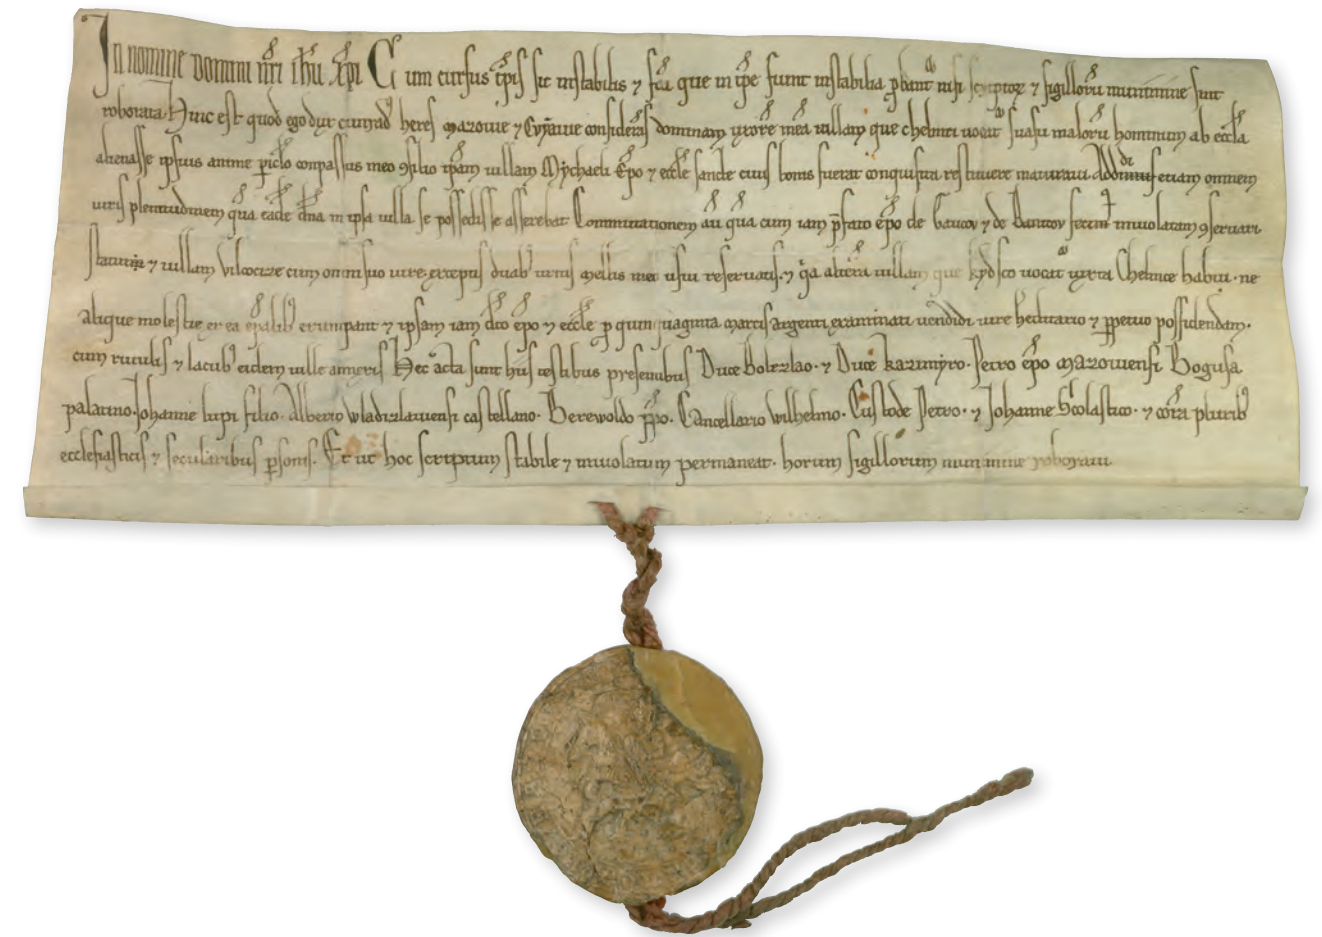 In nomine domini nr̄i ih̄u xp̄i Cum cursus tp̄is sit instabilis ⁊ fc̄a que in tp̄e sunt instabilia ꝓbant͛ nisi scriptoꝝ ⁊ sigilloꝝ munimine sint
roborata. Hinc est quod ego dux cunrad᷒ heres mazouie ⁊ Cuyauie dominam uxorē meā uillam que chelmci uocat͛ suasu malorū hominum ab eccl̄a
alienasse ipsius anime ꝑicl̄o conpassus meo ꝯsilio ip̄am uillam Mychaeli Ep̄o ⁊ eccl̄e sancte cuius bonis fuerat conquisita restituere maturaui. Addidi etiam omnem
iuris plenitudinem quā eadē dn̄a in ipsa uilla se possedisse asserebat. Comminationem aū quā cum iam p̄fato ep̄o de ⁊ de feci inuiolatam ꝯseruari
statuim᷒ ⁊ uillam cum omni suo iure. exceptis duab᷒ urnis mellis meo usui reseruatis. ⁊ q̄a alterā uillam que kydsco uocat͛ iuxta Chelmce habui. ne
alique molestie ex ea ep̄alib᷒ erumpant ⁊ ipsam iam dc̄o ep̄o ⁊ eccl̄e ꝑ quinquaginta marcis argenti examinati uendidi iure hereditario ⁊ ꝑpetuo possidendam.
cum riuulis ⁊ lacub᷒ eidem uille annexis Hec acta sunt hiis testibus presentibus Duce Bolezlao. ⁊ Duce kazimyro. Petro ep̄o mazouiensi Bogusa
palatino. Johanne lupi filio. Alberto wladizlauiensi castellano. Berewoldo p̄p̄o. Cancellario wilhelmo. Custode Petro. ⁊ Johanne Scolastico. ⁊ corā plurib᷒
ecclesiasticis ⁊ secularibus ꝑsonis. Et ut hoc scriptum stabile ⁊ inuiolatum permaneat. horum sigillorum munimine roboraui.